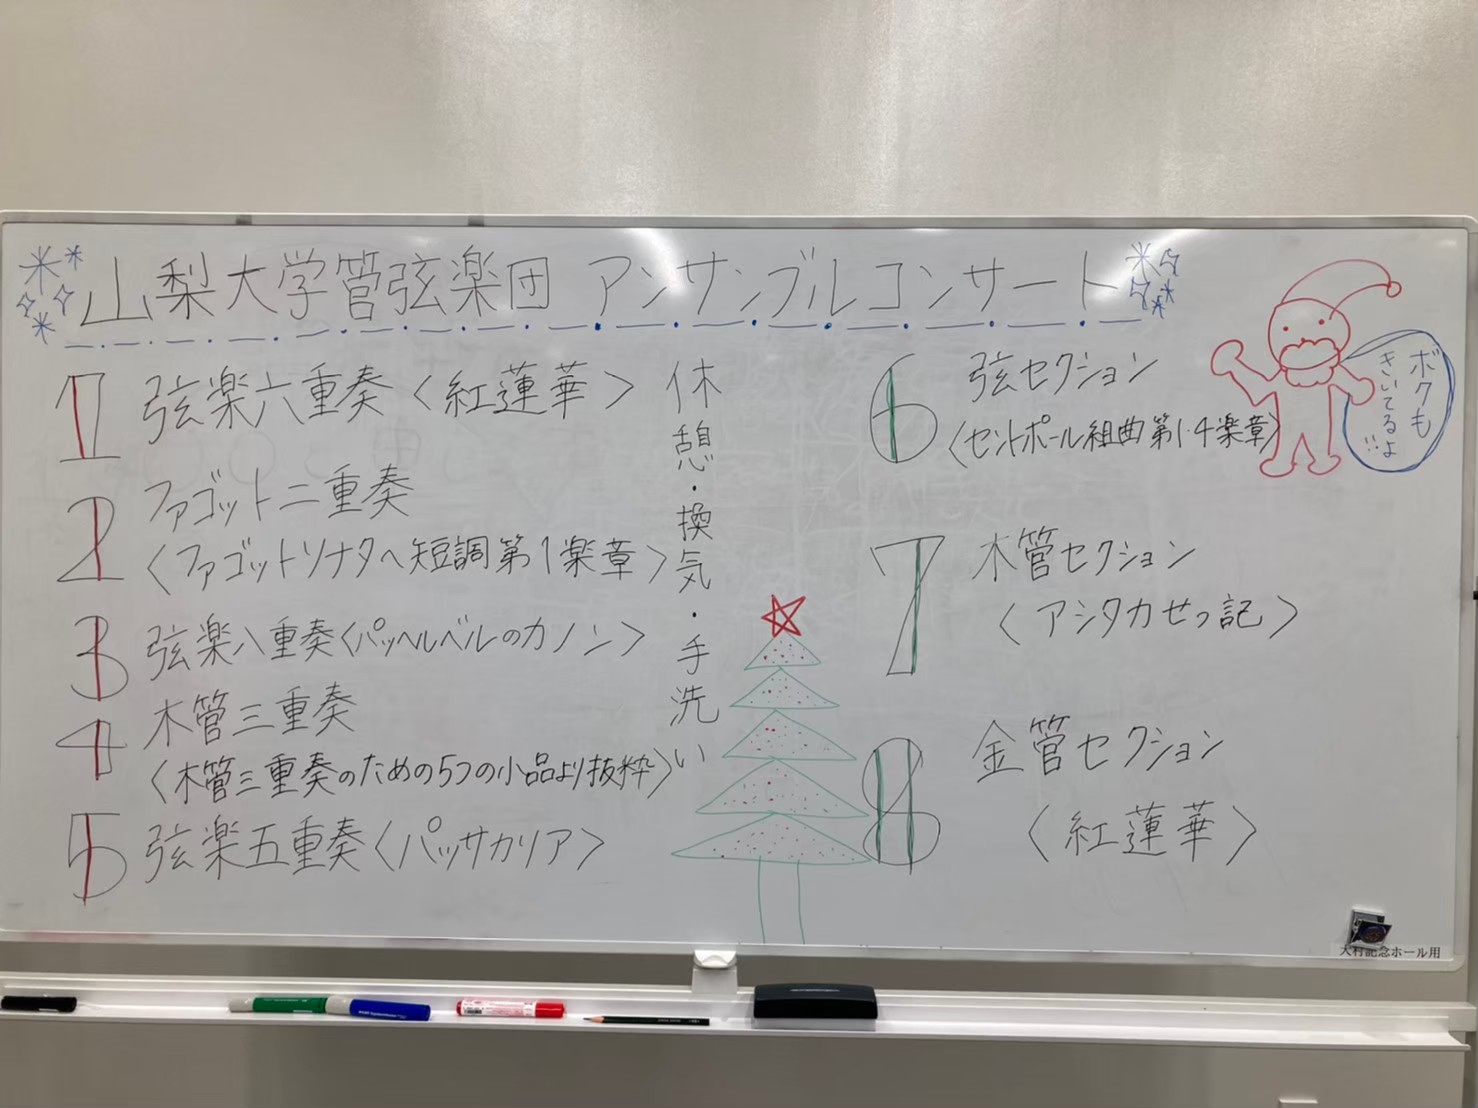 山梨大学管弦楽団 アンサンブルコンサート
1 弦楽六重奏〈紅蓮華〉
2 ファゴット二重奏
〈ファゴットソナタへ短調第1楽章〉
3 弦楽八重奏〈パッヘルベルのカノン〉
4 木管三重奏
〈木管三重奏のための5つの小品より抜粋〉
5 弦楽五重奏〈パッサカリア〉
休憩・換気・手洗い
6 弦セクション
〈セントポール組曲第1・4楽章〉
7 木管セクション
〈アシタカせっ記〉
8 金管セクション
〈紅蓮華〉
ボクも
きいてるよ
大村記念ホール用